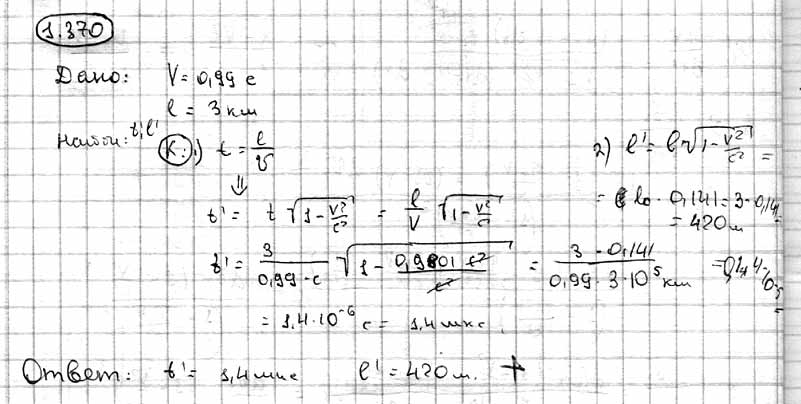 1.370
Дано: V = 0,99 c
l = 3 км
Найти: t', l'
К: 1) t = l/v
⇓
t' = t √(1 - v²/c²) = l/V √(1 - v²/c²)
t' = 3/(0,99 · c) √(1 - 0,9801 c²/c²) = 3 · 0,141/(0,99 · 3 · 10⁵ км
= 1,4 · 10⁻⁶ c = 1,4 мкс.
2) l' = l √(1 - v²/c²) =
= l₀ · 0,141 = 3 · 0,141 =
= 420 м
Ответ: t' = 1,4 мкс l' = 420 м. +